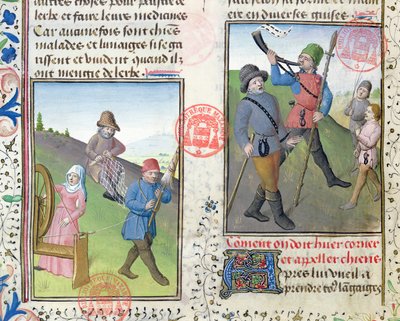 autres choses pour paistre de
lerbe et faire leurs medicines
Car aucunefois sont chiēs
malades et lunaiges si se ga
rissent et vuident quand ilz
ont mengie de lerbe.
er en diverses guises.
Coment on doit huer corner
et appeller chiens
Apres lui vueil a
prendre